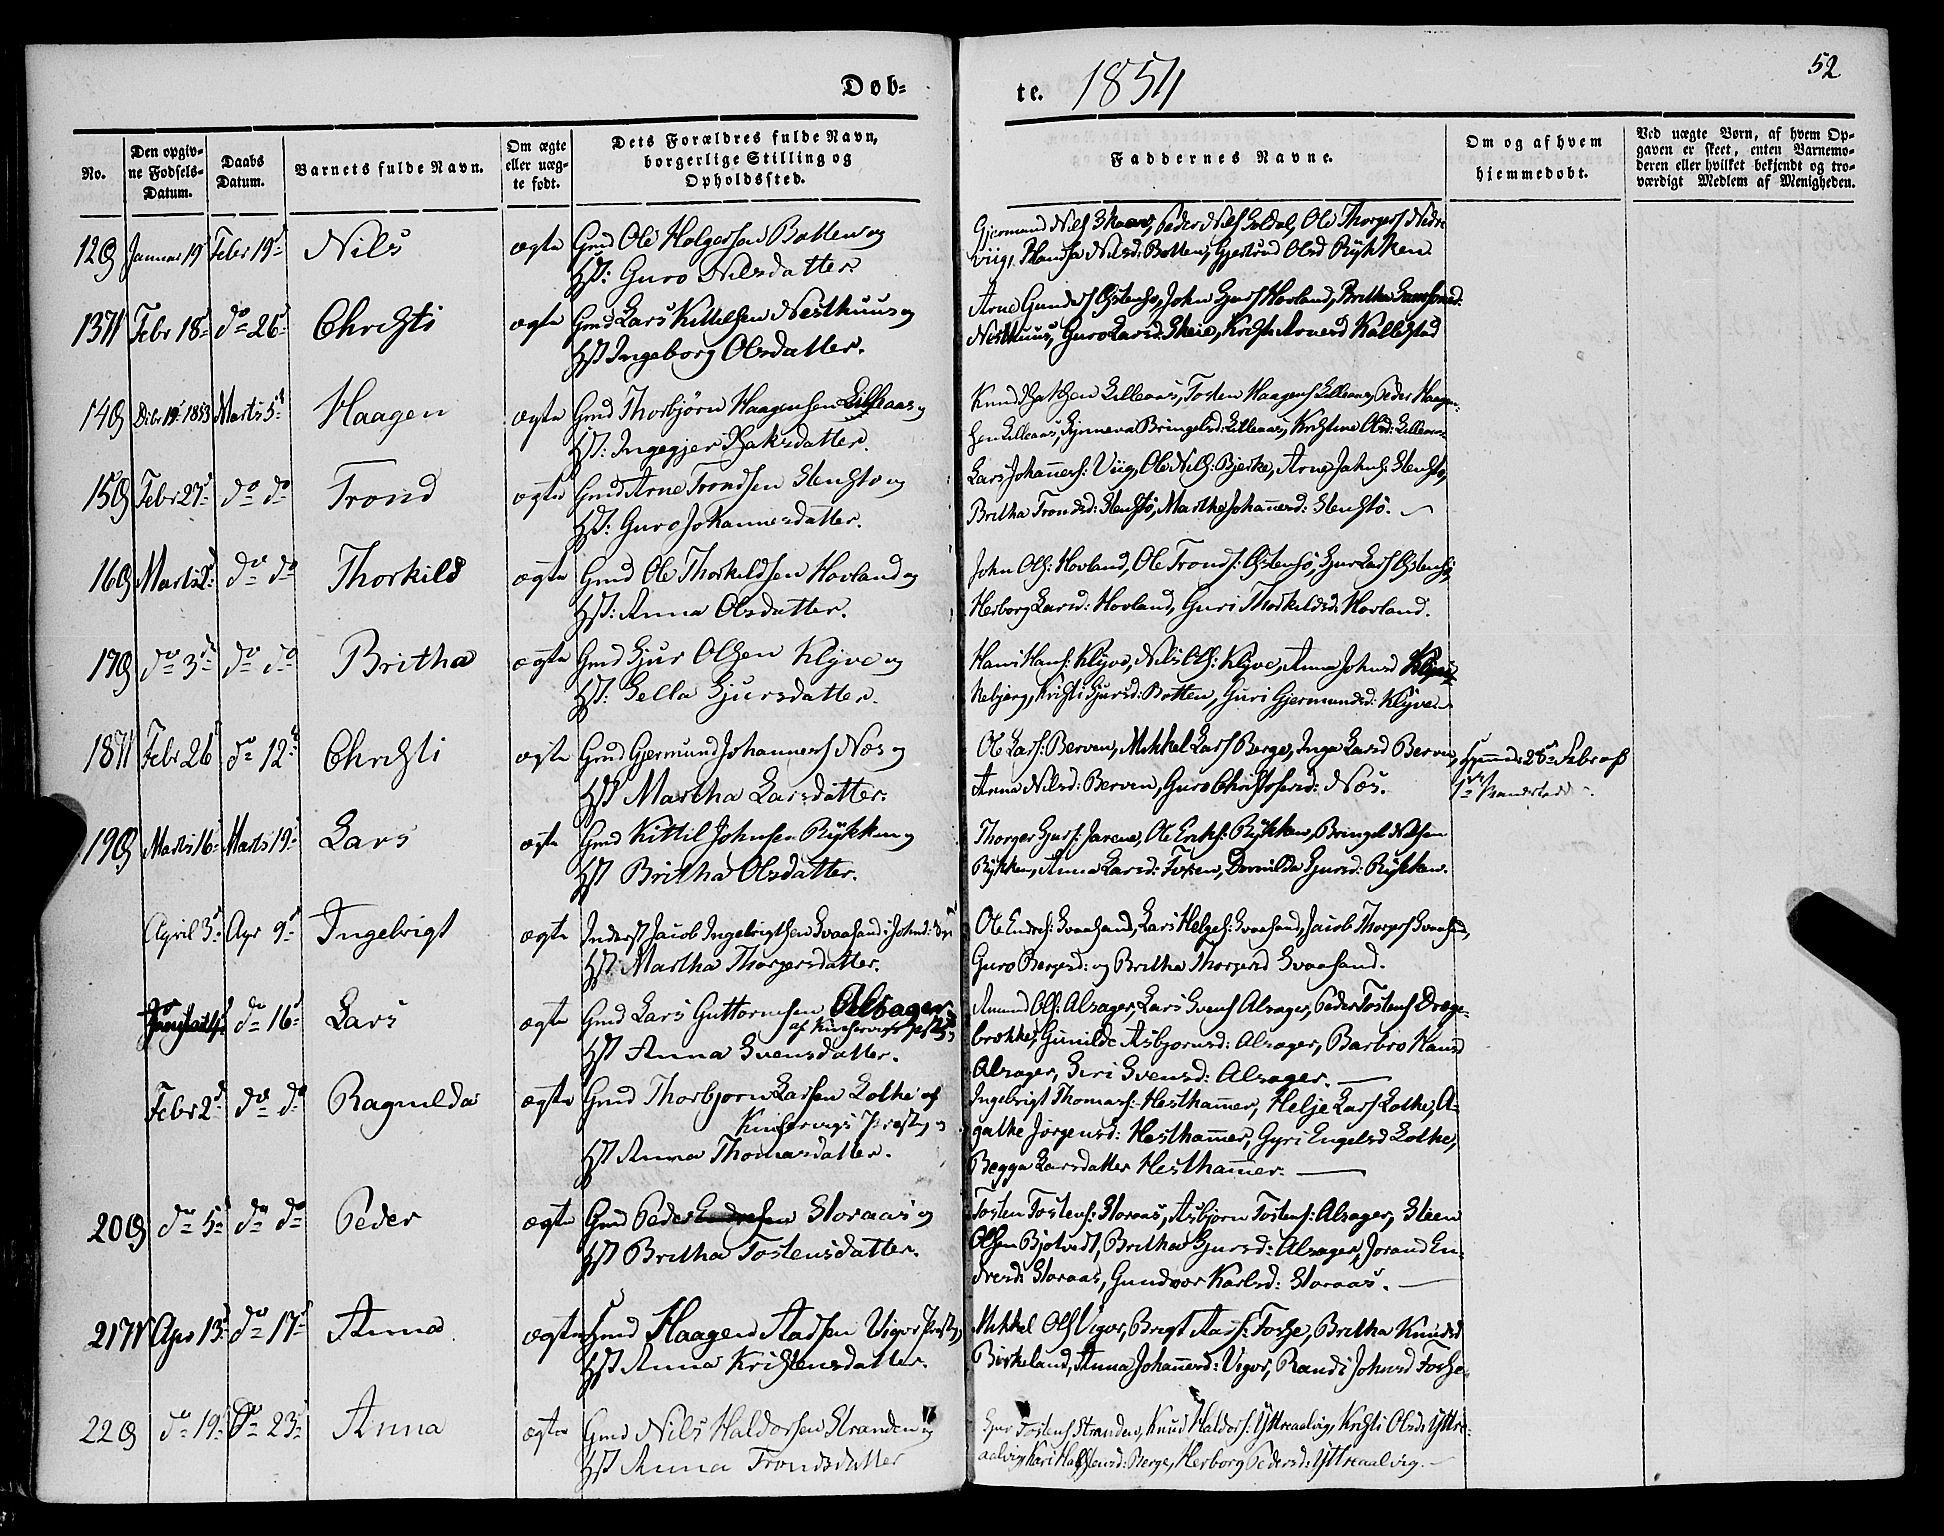 52
Døb-
te. 1854
No.
Den opgiv-
ne Fødsels-
Datum.
Daabs
Datum.
Barnets fulde Navn.
Om ægte
eller uæg-
te født.
Dets Forældres fulde Navn,
borgerlige Stilling og
Opholdssted.
Faddernes Navne.
Om og af hvem
hjemmedøbt.
Ved uægte Børn, af hvem Op-
gaven er skeet, enten Barnemo-
deren eller hvilket bekjendt og tro-
værdigt Medlem af Menigheden.
12 Januar 19 Febr 19 Nils ægte Gmd Ole Holgersen Botten og
Hst: Guro Nilsdatter.
Gjermund Nils Skaar, Peder Nils Soldal, Ole Thorgers Nedre
Viig, Nilsd: Botten, Gjertrud Olsd Rykken.
13 Febr 18 do 26 Christi ægte Gmd Lars Kittilsen Nesthuus og
Hst Ingeborg Olsdatter.
Arne Ystensø, John Hovland, Britha
Nesthuus, Guro Larsd: Skeie, Arnesd Kallestad
14 Dcbr 19 1853 Marts 5 Haagen ægte Gmd Thorbjørn Haagensen Lilleaas og
Hst: Ingegjer Isaksdatter.
Knud Isaksen Lilleaas, Tosten Haagens Lilleaas, Peder Haagen-
sen Lilleaas, Bringelsd: Lilleaas, Kristine Olsd: Lilleaas
15 Febr 27 do do Trond ægte Gmd Arne Trondsen Stensø og
Hst: Guro Johannesdatter.
Lars Johannes: Viig, Ole Nils: Bjerke, Arne Johns: Stensø,
Britha Trondsd: Stensø, Martha Johannesd: Stensø.
16 Marts 2 do do Thorkild ægte Gmd Ole Thorkildsen Hovland og
Hst: Anna Olsdatter.
John Ols: Hovland, Ole Tronds: Ystensø, Gjur Lars Ystensø,
Herborg Larsd: Hovland, Guri Thorkildsd: Hovland.
17 do 3 do do Britha ægte Gmd Gjur Olsen Klyve og
Hst: Sella Gjursdatter.
Hans Hans: Klyve, Nils Ols: Klyve, Anna Johnsd
Nebjerg, Kristi Gjursd: Botten, Guri Gjermundsd: Klyve
18 Febr 26 do 12 Christi ægte Gmd Gjermund Johannes Næs og
Hst Martha Larsdatter.
Ole Lars: Berven, Mikkel Lars Berge, Inga Larsd Berven,
Anna Nilsd: Berven, Guro Christofersd: Næs.
28 Febr af
19 Marts 16 Marts 19 Lars ægte Gmd Kittil Johnsen Rykken og
Hst Britha Olsdatter.
Thorger Gjurs: Jarene, Ole Eriks: Rykken, Bringel Nilsen
Rykken, Anna Larsd: Torpen, Gjursd: Rykken.
April 3 Apr 9 Ingebrigt ægte Inderst Jacob Ingebrigtsen Svaasand i
Hst Martha Thorgersdatter.
Ole Endres: Svaasand, Lars Helges: Svaasand, Jacob Thorgers Svaasand,
Guro Bergesd: og Britha Thorgersd Svaasand.
do 16 Lars ægte Gmd Lars Guttormsen Alsager
af Kinservigs
Hst Anna Svensdatter.
Amund Ols: Alsager, Lars Svens Alsager, Peder Tostens Dræge-
brekke, Gunilde Asbjørnsd: Alsager, Barbro
Alsager, Siri Svensd: Alsager.
Febr 2 do do Ragnilda ægte Gmd Thorbjørn Larsen Lothe af
Kinservigs Præstg og
Hst Anna Thomasdatter.
Ingebrigt Thomas: Hesthammer, Helje Lars Lothe, A-
gathe Jørgensd: Hesthammer, Gyri Engelsd Lothe,
Begga Larsdatter Hesthammer.
20 do 5 do do Peder ægte Gmd Peder Endresen Storaas og
Hst Britha Tostensdatter.
Tosten Tostens: Storaas, Asbjørn Tostens: Alsager, Steen
Olsen Bjotvedt, Britha Gjursd: Alsager, Jorand En-
dresd: Storaas, Gundvor Karlsd: Storaas.
21 Apr 13 do 17 Anna ægte Gmd Haagen Aadsen Vigør
Hst Anna Kristensdatter.
Mikkel Ols Vigør, Brigt Aads: Fosse, Britha Knudsd
Birkeland, Anna Johannesd: Vigør, Randi Johnsd Fosse.
22 do 19 do 23 Anna ægte Gmd Nils Haldorsen Stranden og
Hst Anna Trondsdatter
Gjur Tostens Stranden, Knud Haldors: Ytreaalvig, Kristi Olsd: Yttre-
aalvig, Kari Berge, Herborg Pedersd: Yttreaalvig.